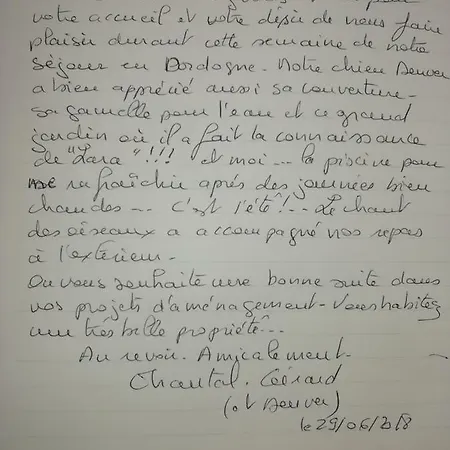 votre accueil et votre désir de nous faire
plaisir durant cette semaine de notre
séjour en Dordogne. Notre chien Denver
a bien apprécié aussi sa couverture -
sa gamelle pour l'eau et ce grand
jardin où il a fait la connaissance
de "Lara" !!! et moi... la piscine pour
me rafraîchir après des journées bien
chaudes... C'est l'été !.. Le chant
des oiseaux a accompagné nos repas
à l'extérieur -
On vous souhaite une bonne suite dans
vos projets d'aménagement - Vous habitez
une très belle propriété...
Au revoir. Amicalement.
Chantal. Gérard
(et Denver)
le 29/06/2018